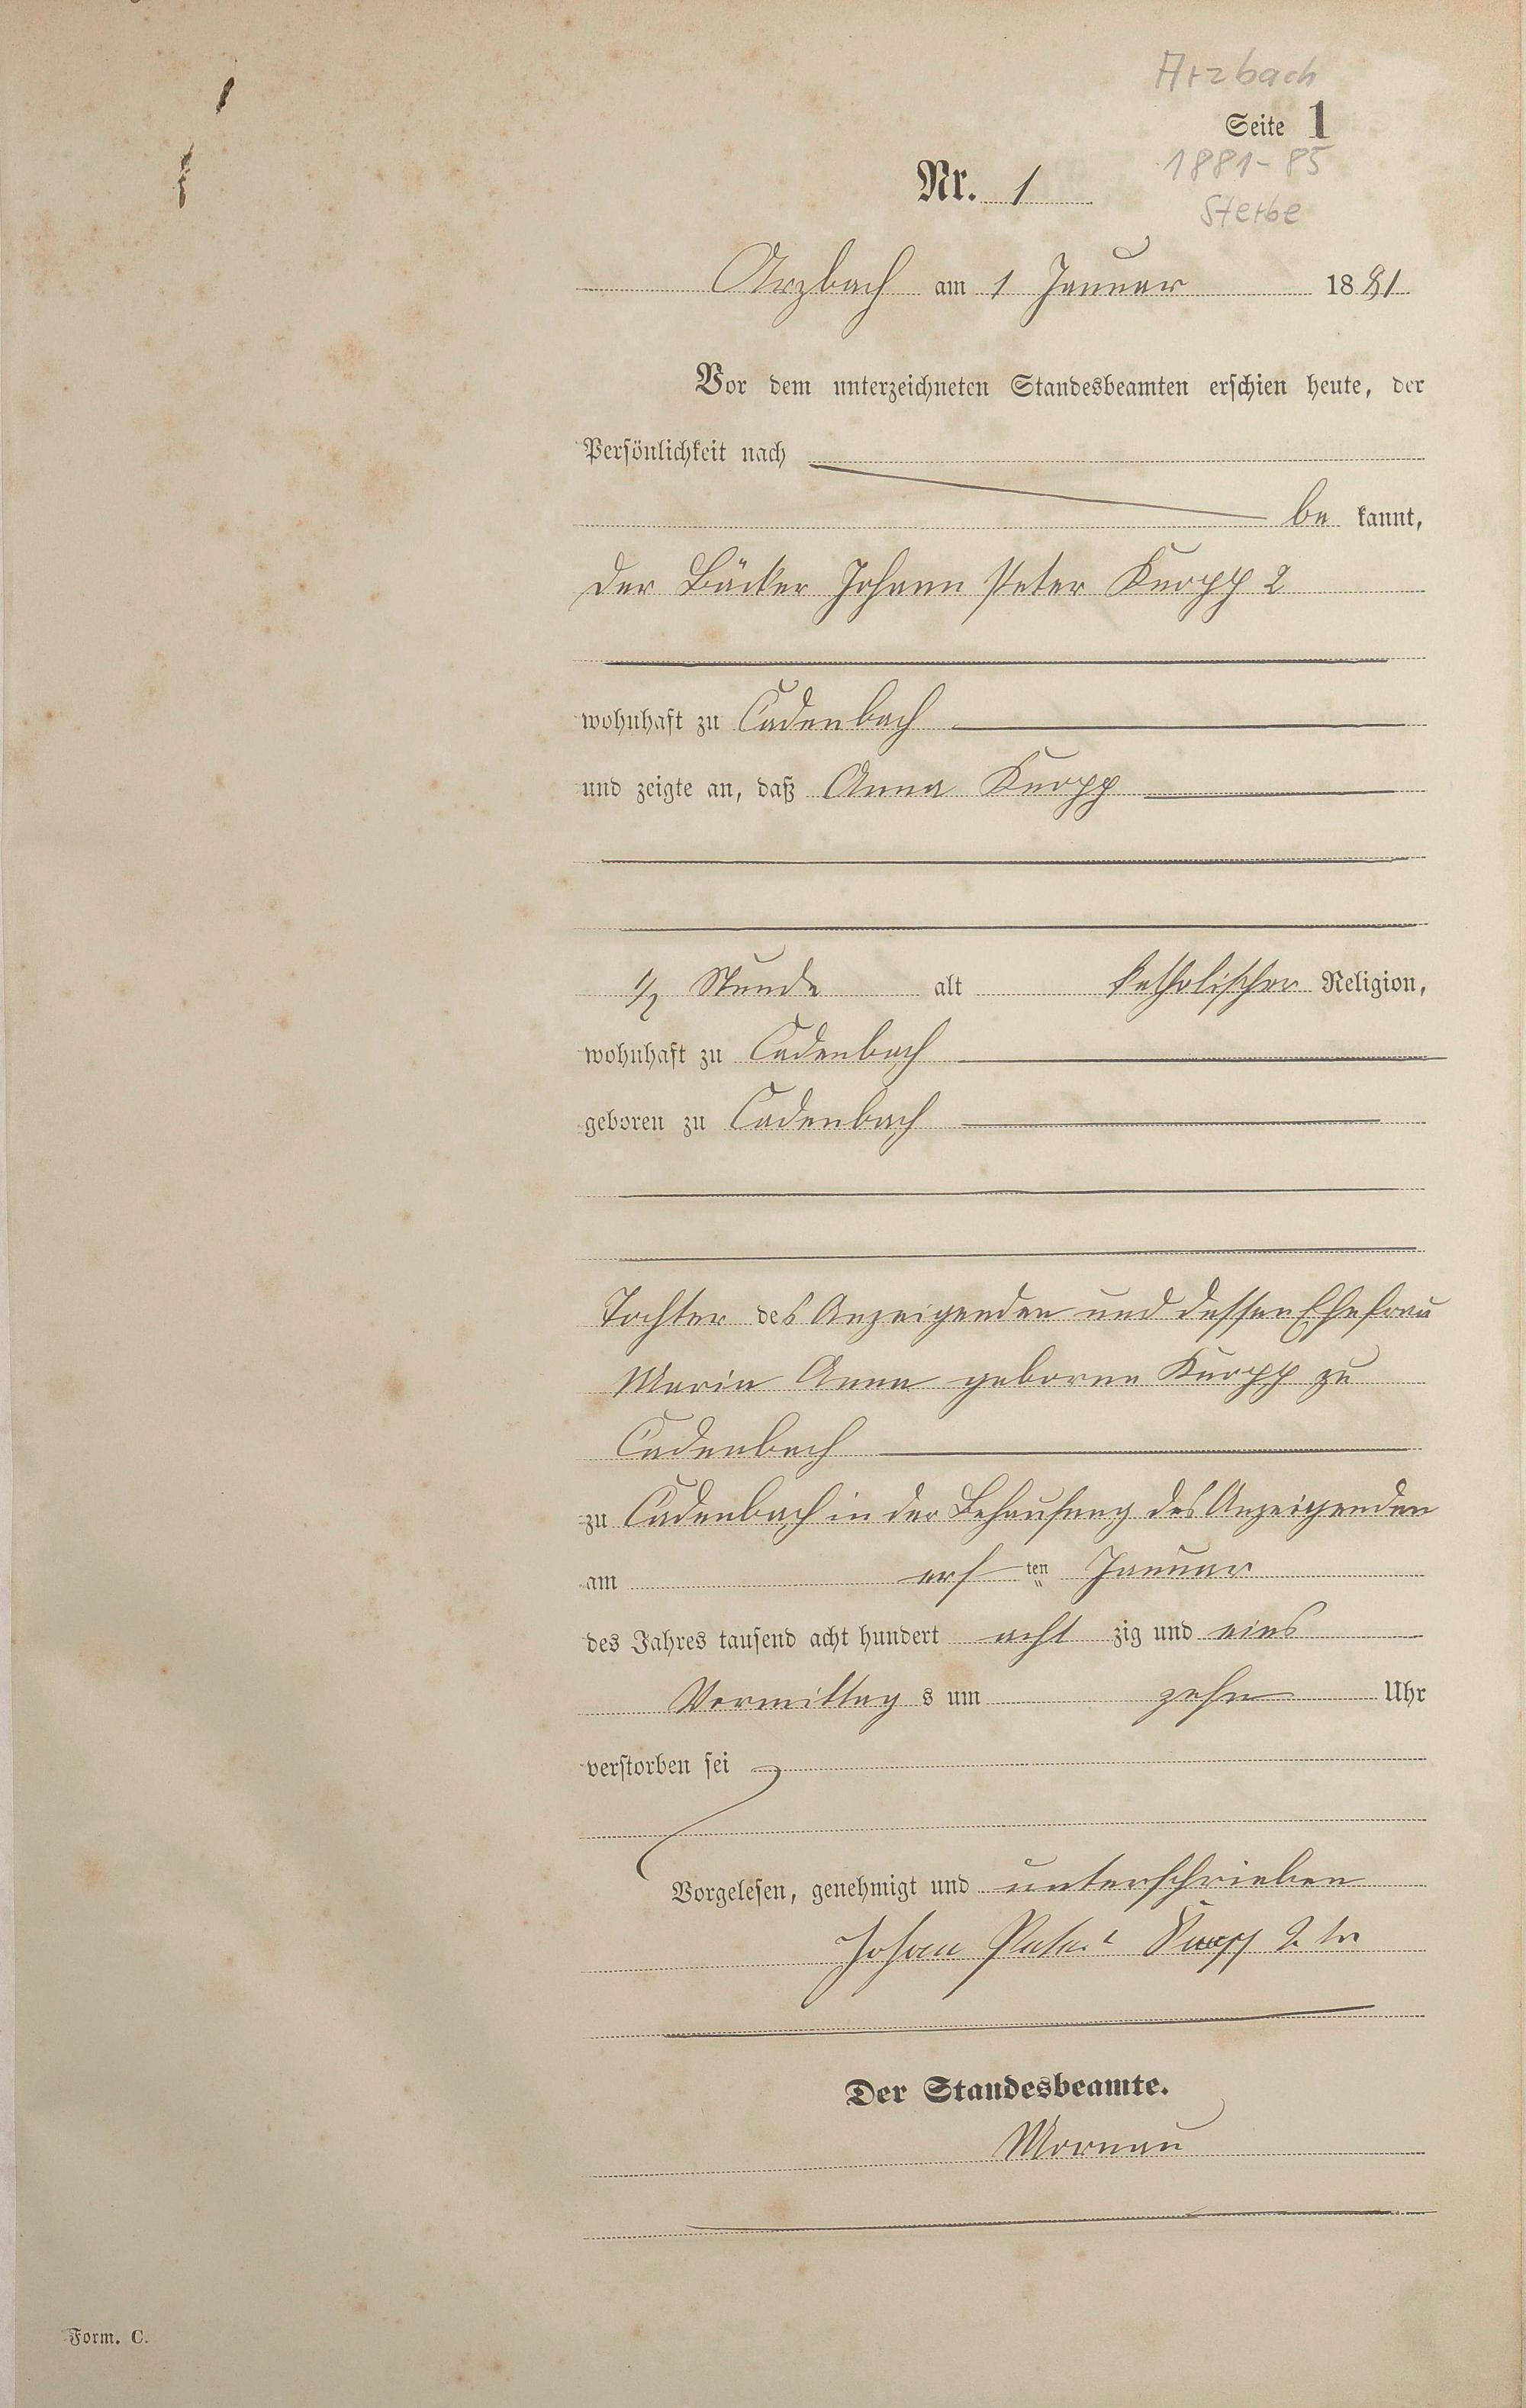 Arzbach
Seite 1
1881-85
Nr. 1
Sterbe
Arzbach am 1 Januar 1881
Vor dem unterzeichneten Standesbeamten erschien heute, der
Persönlichkeit nach
be kannt,
der Bäcker Johann Peter Knopp 2
wohnhaft zu Cadenbach
und zeigte an, daß Anna Knopp
1/2 Stunde alt katholischer Religion,
wohnhaft zu Cadenbach
geboren zu Cadenbach
Tochter des Anzeigenden und dessen Ehefrau
Maria Anna geborne Knopp zu
Cadenbach
zu Cadenbach in der Behausung des Anzeigenden
am ers ten Januar
des Jahres tausend acht hundert acht zig und eins
Vormittag s um zehn Uhr
verstorben sei
Vorgelesen, genehmigt und unterschrieben
Johan Peter Knopp 2 ter
Der Standesbeamte.
Mornau
Form. C.